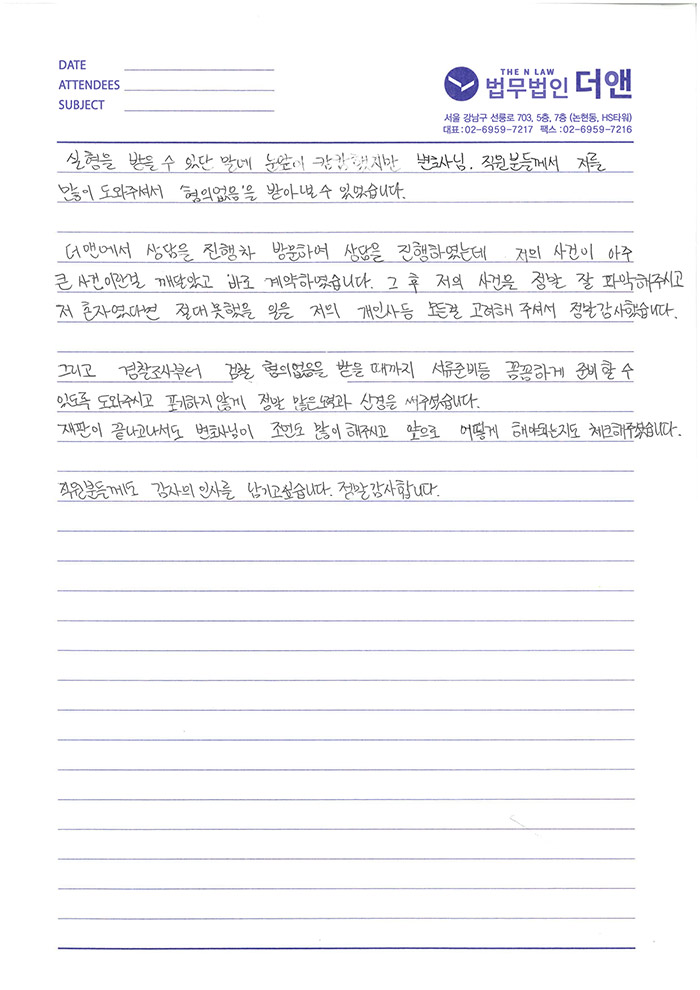 DATE
ATTENDEES
SUBJECT
THE N LAW
법무법인 더앤
서울 강남구 선릉로 703, 5층, 7층 (논현동, HS타워)
대표:02-6959-7217 팩스:02-6959-7216
실형을 받을 수 있단 말에 눈앞이 캄캄했지만 변호사님, 직원분들께서 저를
많이 도와주셔서 '혐의없음'을 받아낼 수 있었습니다.
더앤에서 상담을 진행차 방문하여 상담을 진행하였는데 저의 사건이 아주
큰 사건이란걸 깨달았고 바로 계약하였습니다. 그 후 저의 사건을 정말 잘 파악해주시고
저 혼자였다면 절대 못했을 일을 저의 개인사등 모든걸 고려해 주셔서 정말감사했습니다.
그리고 경찰조사부터 검찰 혐의없음을 받을 때까지 서류준비등 꼼꼼하게 준비할 수
있도록 도와주시고 포기하지 않게 정말 많은노력과 신경을 써주셨습니다.
재판이 끝나고나서도 변호사님이 조언도 많이 해주시고 앞으로 어떻게 해야되는지도 체크해주셨습니다.
직원분들께도 감사의 인사를 남기고싶습니다. 정말감사합니다.